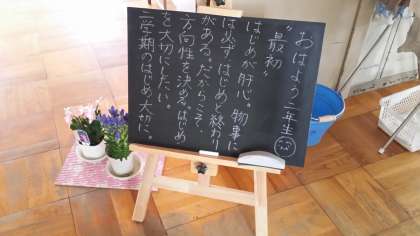 おはよう二年生
"最初"
はじめが肝心。物事に
は必ずはじめと終わり
がある。だからこそ、
方向性を決める。はじめ
を大切にしたい。
二学期のはじめ、大切に。